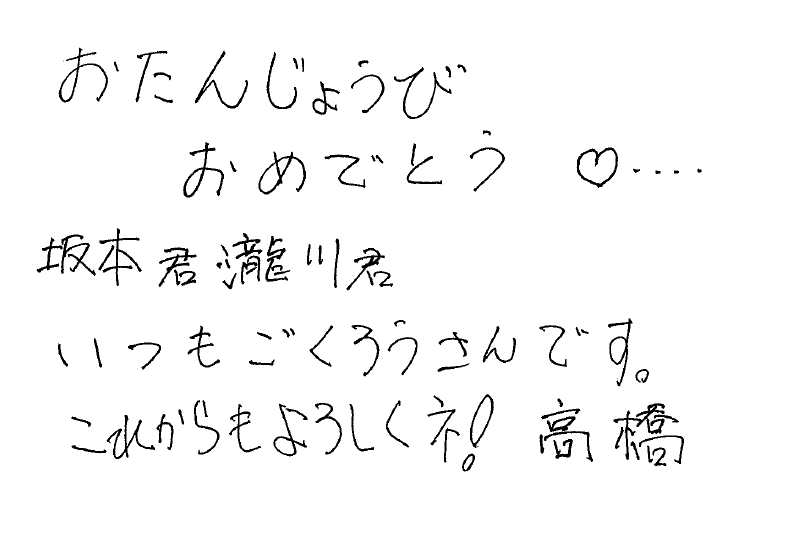 おたんじょうび
おめでとう ♡....
坂本君瀧川君
いつもごくろうさんです。
これからもよろしくネ! 高橋